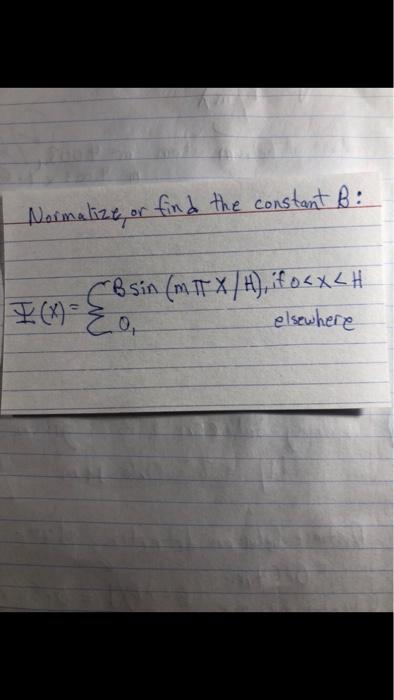 Normalize, or find the constant B:
Ψ(x) = { B sin (mπx/H), if 0<x<H
0, elsewhere